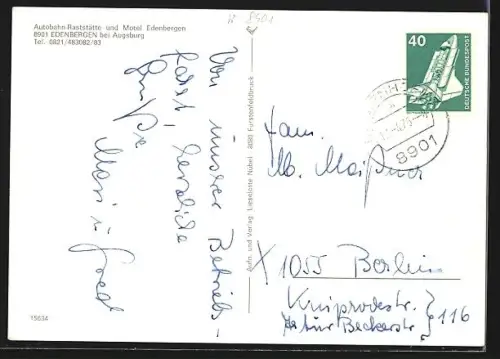 W 8901
Autobahn-Raststätte und Motel Edenbergen
8901 EDENBERGEN bei Augsburg
Tel. 0821/483082/83
Von unserer Betriebs-
fahrt, herzliche
Grüße
Aufn. und Verlag Lieselotte Nübel 8080 Fürstenfeldbruck
15634
40
DEUTSCHE BUNDESPOST
8901
Fam.
M. Meißner
X 1055 Berlin
Kniprodestr. } 116
Artur Beckerstr.